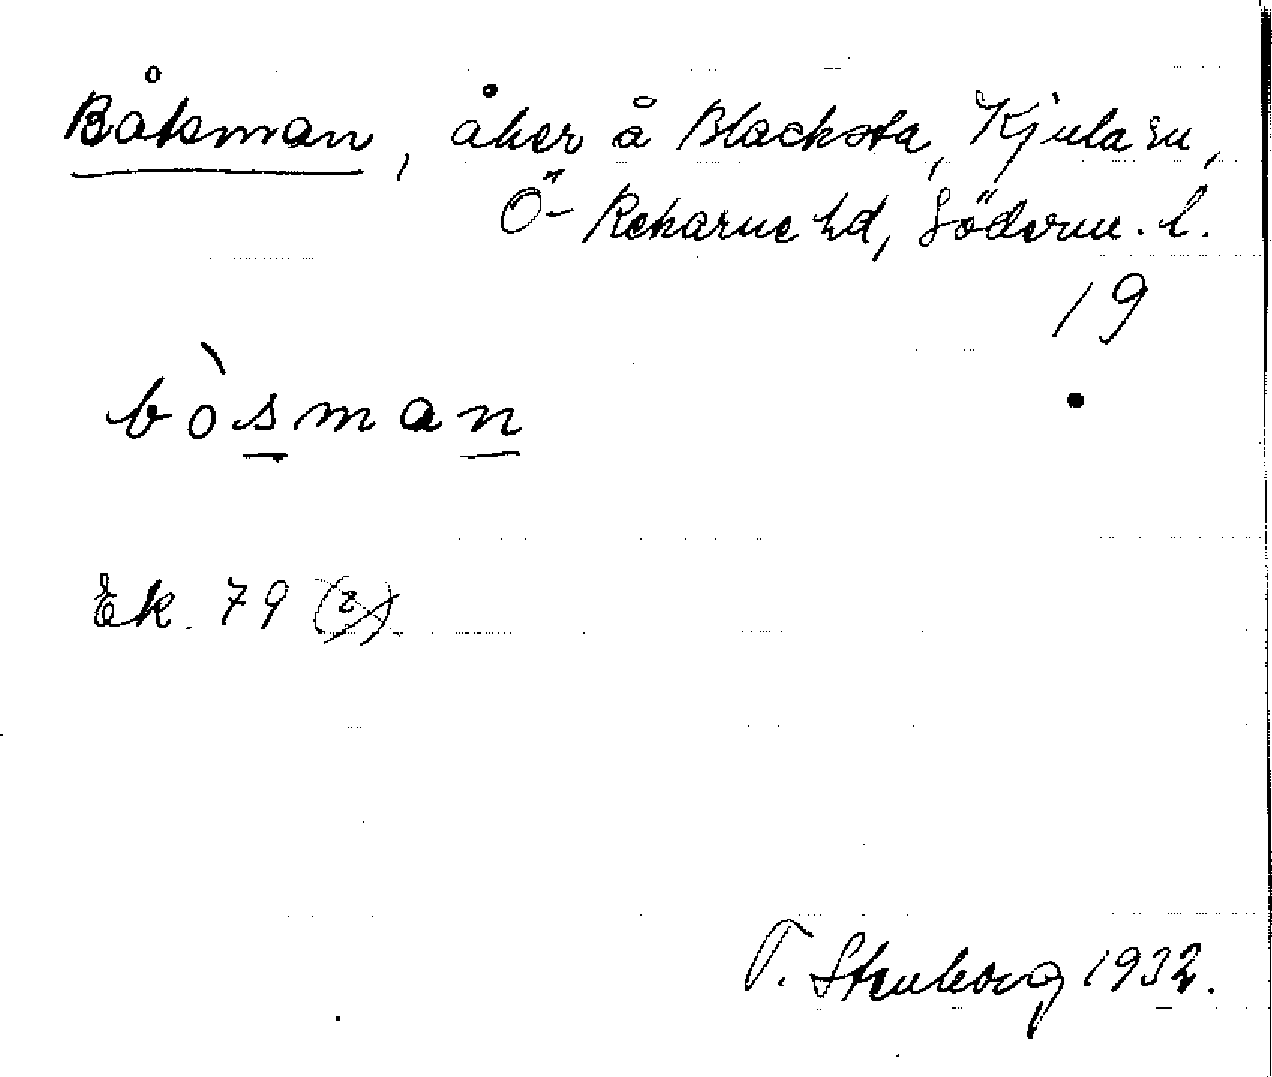 Båtsman, åker å Blacksta, Kjula sn,
Ö- Rekarne hd, Söderm. l.
19
bòsman
Ek. 79 (2)
T. Stenborg 1932.